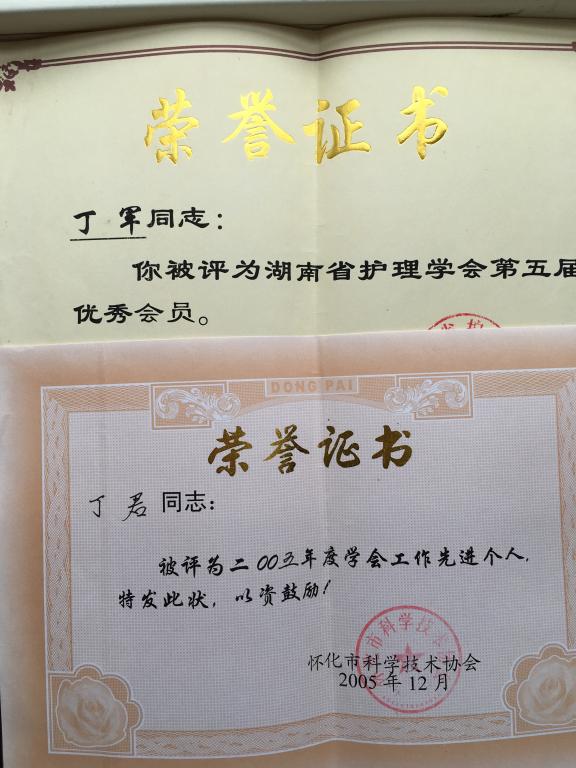 荣誉证书
丁军同志：
你被评为湖南省护理学会第五届
优秀会员。
DONG PAI
荣誉证书
丁君同志：
被评为二00五年度学会工作先进个人，
特发此状，以资鼓励！
怀化市科学技术协会
2005年12月